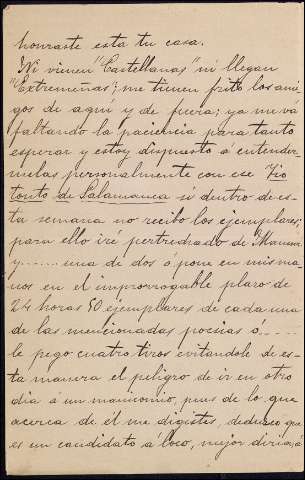 honraste esta tu casa.
Ni vienen "Castellanas" ni llegan
"Extremeñas"; me tienen frito los ami-
gos de aquí y de fuera; ya me va
faltando la paciencia para tanto
esperar y estoy dispuesto á entender-
melas personalmente con ese Tio
tonto de Salamanca si dentro de es-
ta semana no recibo los ejemplares;
para ello iré pertrechado de Mauser
y....... una de dos ó pone en mis ma-
nos en el improrrogable plazo de
24 horas 50 ejemplares de cada una
de las mencionadas poesias ó.....
le pego cuatro tiros evitandole de es-
ta manera el peligro de ir en otro
dia á un manicomio, pues de lo que
acerca de él me digistes, deduzco que
es un candidato á loco, mejor diria, á